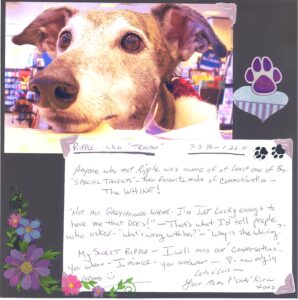 RIPPLE aka "TRAUMA"
Anyone who met Ripple was aware of at least one of her
"special talents" - her favorite mode of communication -
The WHINE!
"Not all Greyhounds WHINE - I'm just lucky enough to
have one that DOES!" - That's what I'd tell people
who asked - "what's wrong with her" - "why is she whining"
My Sweet Ripple - I will miss our "conversations" -
you whine - I mimic - you answer -
Lots of Love -
Your Mom